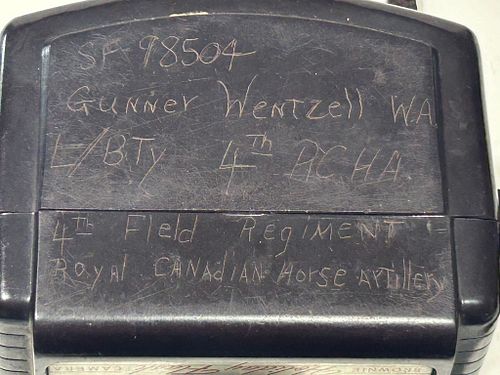 SF 98504
GUNNER WENTZell W.A
L/BTy 4Th RCHA
4Th FIeld REgIMENT -
Royal CANAdiaN Horse ARTillery
BROWNIE Holiday Flash CAMERA